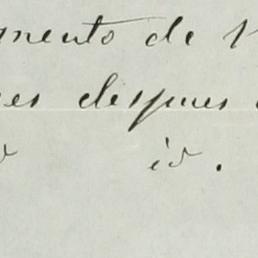 mento de
es despues
id.